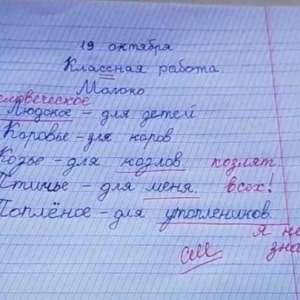 19 октября
Классная работа
Молоко
еловеческое
Людское - для детей
Коровье - для коров
Козье - для козлов. козлят
Птичье - для меня. всех!
Топлёное - для утоплеников.
я не
зна
см